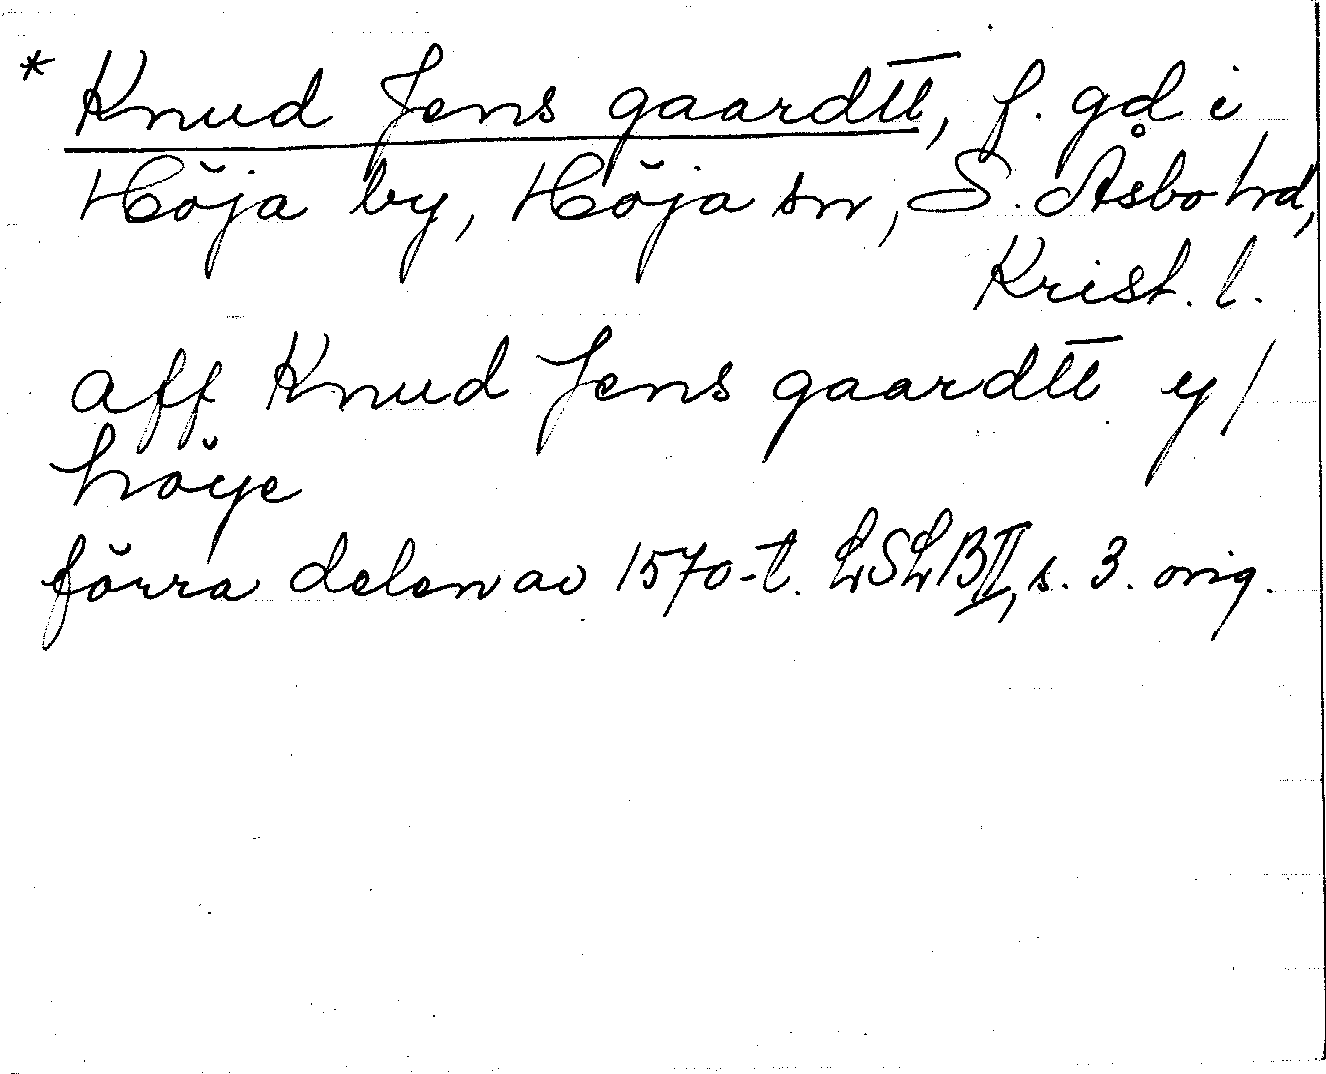 * Knud Jens gaardtt, f. gd i
Höja by, Höja sn, S. Åsbo hrd,
Krist. l.
aff Knud Jens gaardtt y/
höye
förra delen av 1570-t. LSLB II, s. 3. orig.